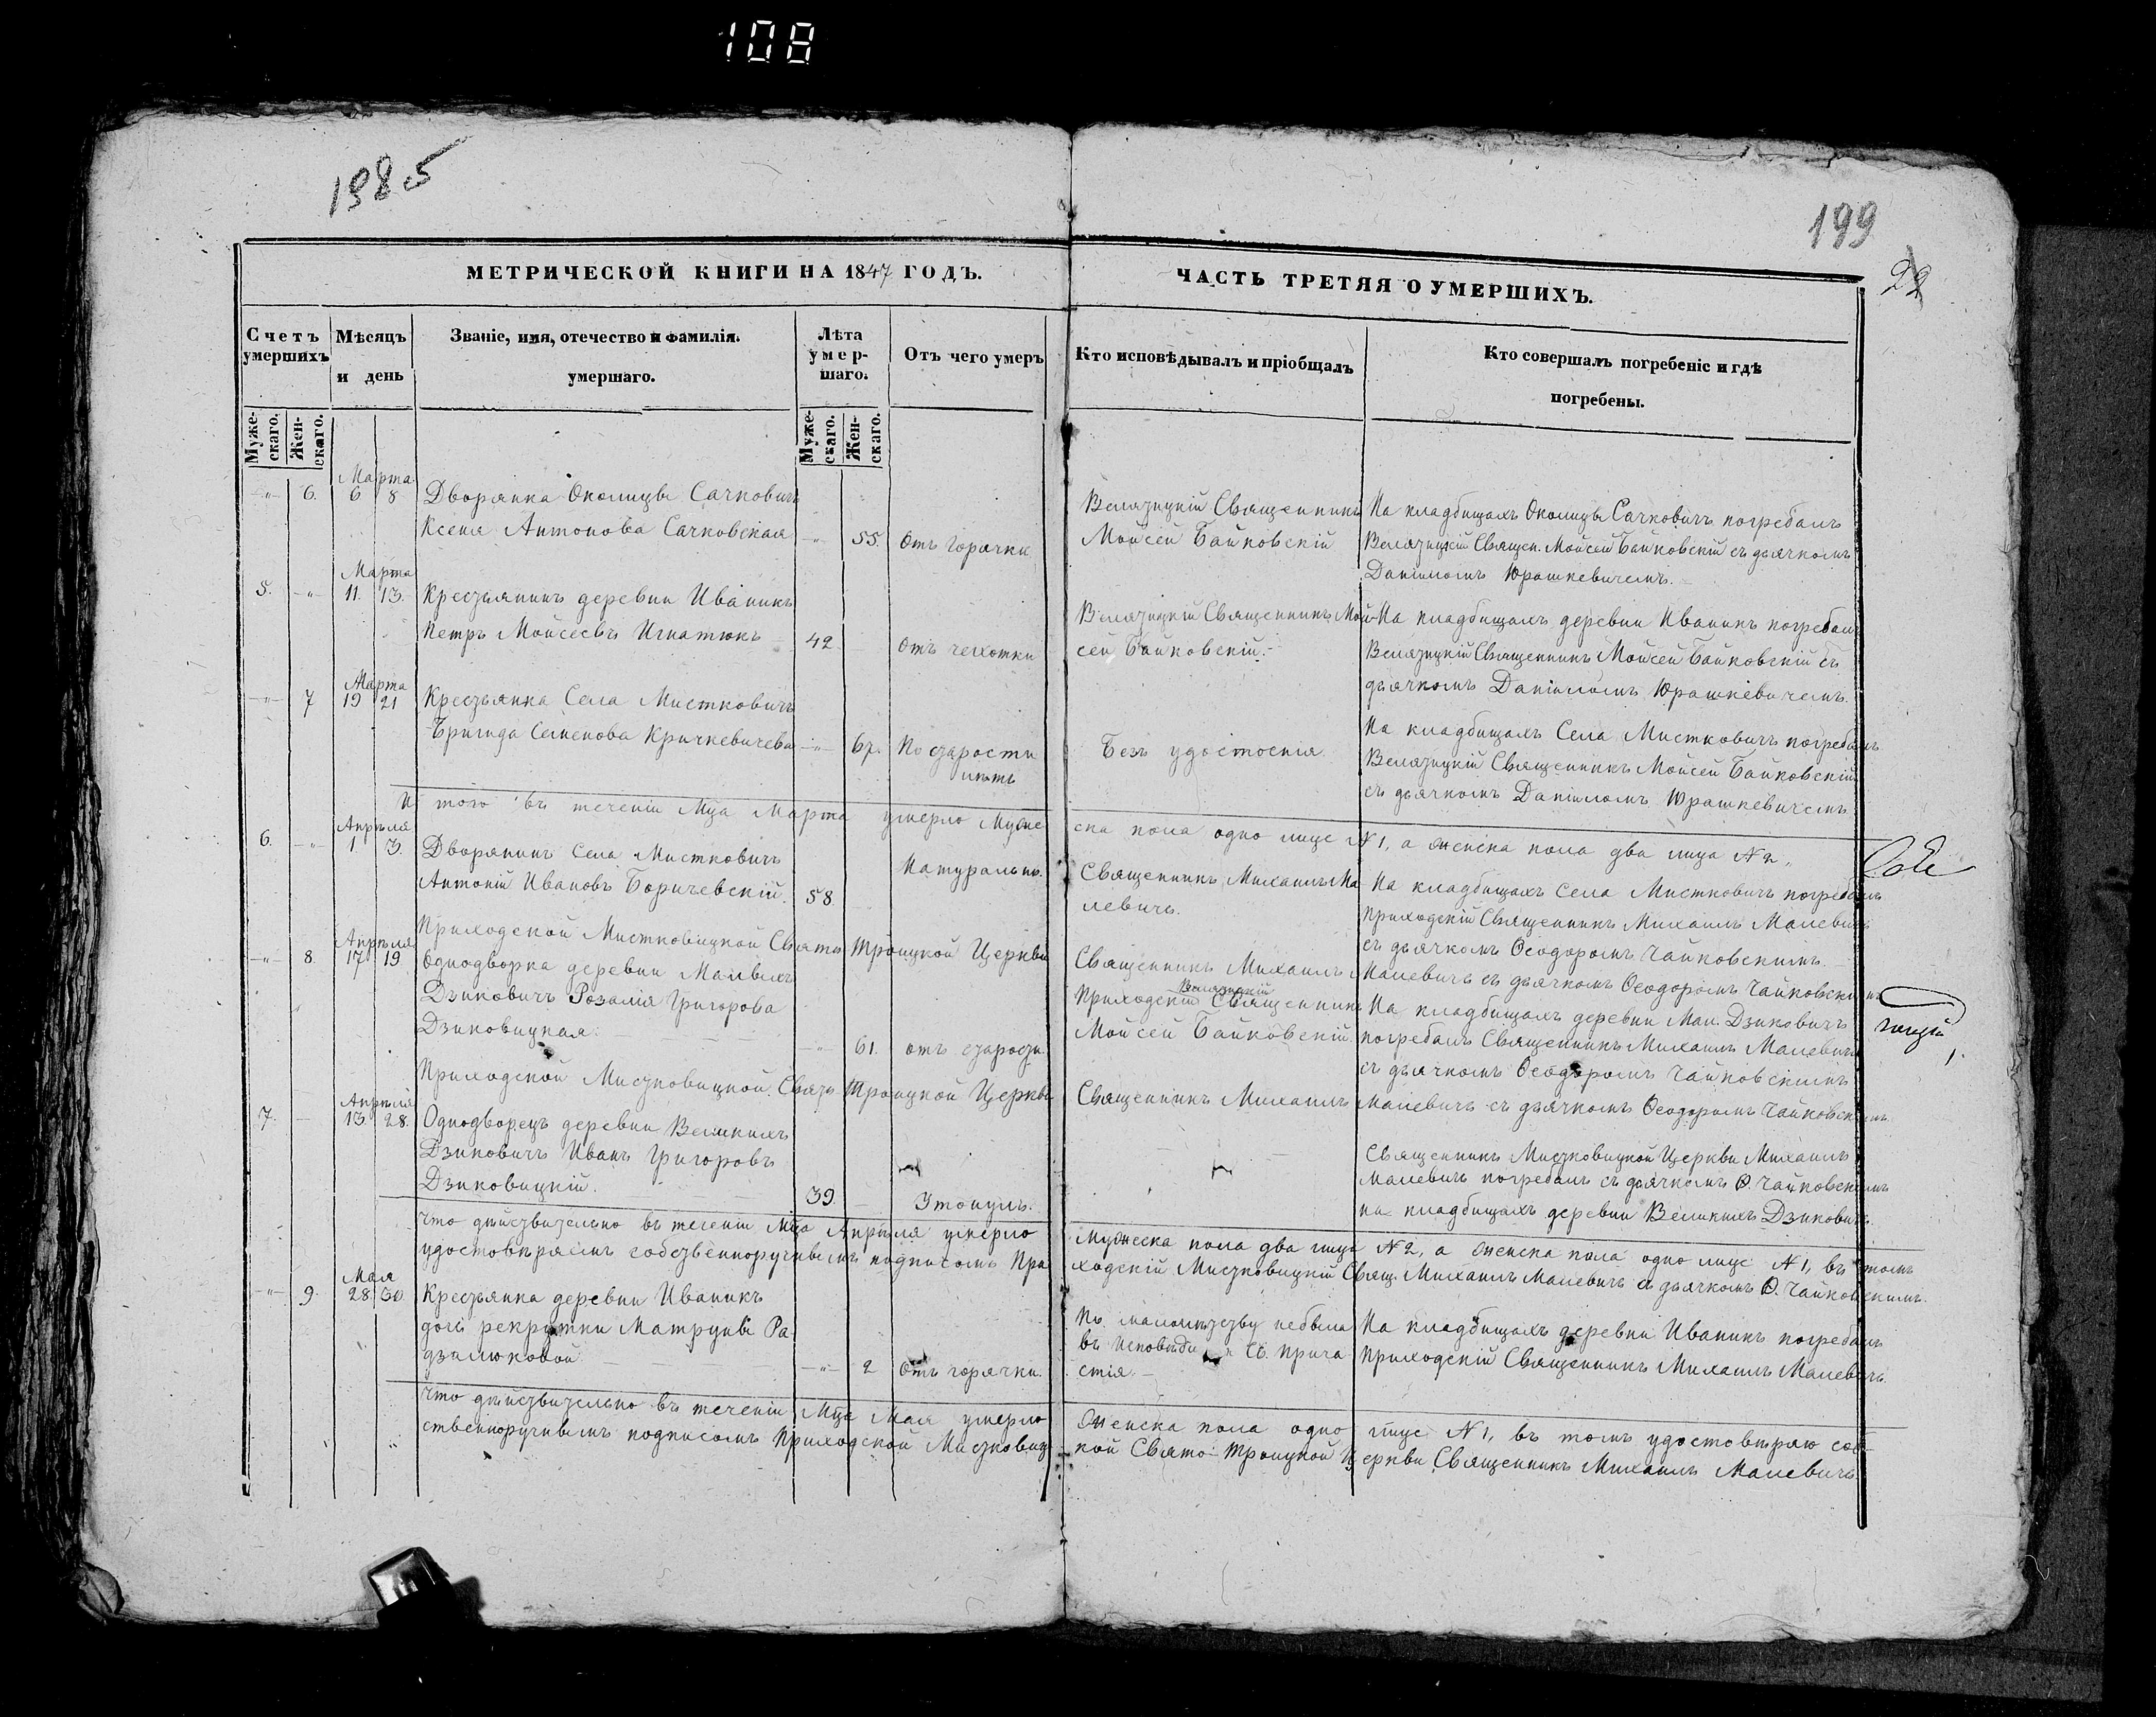 108
1985
199
22
МЕТРИЧЕСКОЙ КНИГИ НА 1847 ГОДЪ.
ЧАСТЬ ТРЕТЯЯ О УМЕРШИХЪ.
Счетъ умершихъ
Мѣсяцъ и день
Званіе, имя, отечество и фамилія.
умершаго.
Лѣта умер-
шаго.
Отъ чего умеръ
Кто исповѣдывалъ и пріобщалъ
Кто совершалъ погребеніе и гдѣ
погребены.
Муже-
скаго.
Жен-
скаго.
Муже-
скаго.
Жен-
скаго.
Марта
-"- 6. 6 8 Дворянка Околицы Сачковичъ
Ксеня Антонова Сачковская -"- 55. Отъ горячки
Велязицкій Священникъ
Моисей Байковскій
На кладбищахъ Околицы Сачковичъ погребалъ
Велязицкій Священ. Мойсей Байковскій съ дьячкомъ
Даніиломъ Юрашкевичемъ.
Марта
5. -"- 11. 13. Крестьянинъ деревни Иваникъ
Петръ Мойсеевъ Игнатюкъ 42 Отъ чехотки
Велязицкій Священникъ Мой-
сей Байковскій.
На кладбищахъ деревни Иваникъ погребалъ
Велязицкій Священникъ Мойсей Байковскій съ
дьячкомъ Даніиломъ Юрашкевичемъ.
Марта
-"- 7 19 21 Крестьянка Села Мистковичъ
Бригида Семенова Кричкевичева -"- 67. По старости
лѣтъ
Безъ удостоенія
На кладбищахъ Села Мистковичъ погребалъ
Велязицкій Священникъ Мойсей Байковскій
съ дьячкомъ Даніиломъ Юрашкевичемъ
И того въ теченіи Мца Марта умерло Муже
ска пола одно лице N 1, а женска пола два лица N 2.
Апрѣля
6. -"- 1 3. Дворянинъ Села Мистковичъ
Антоній Ивановъ Боричевскій. 58 Натурально.
Священникъ Михаилъ Ма
левичъ.
На кладбищахъ Села Мистковичъ погребалъ
Приходскій Священникъ Михаилъ Малевичъ
съ дьячкомъ Ѳеодоромъ Чайковскимъ.
Приходской Мистковицкой Свято Троицкой Церкви
Священникъ Михаилъ Малевичъ съ дьячкомъ Ѳеодоромъ Чайковскимъ
Апрѣля
-"- 8. 17 19 Однодворка деревни Малыхъ
Дзиковичъ Розалія Григорова
Дзиковицкая. -"- 61. отъ старости
Велязицкій
Приходскій Священникъ
Мойсей Байковскій.
На кладбищахъ деревни Мал. Дзиковичъ
погребалъ Священникъ Михаилъ Малевичъ
съ дьячкомъ Ѳеодоромъ Чайковскимъ
Приходской Мистковицкой Свято Троицкой Церкви
Священникъ Михаилъ Малевичъ съ дьячкомъ Ѳеодоромъ Чайковскимъ.
Апрѣля
7. - 13. 28. Однодворецъ деревни Великихъ
Дзиковичъ Иванъ Григоровъ
Дзиковицкій. 39. Утонулъ.
Священникъ Мистковицкой Церкви Михаилъ
Малевичъ погребалъ съ дьячкомъ Ѳ. Чайковскимъ
на кладбищахъ деревни Великихъ Дзиковичъ.
Что дѣйствительно въ теченіи Мца Апрѣля умерло
мужеска пола два лица N 2, а женска пола одно лице N 1, въ томъ
удостовѣряемъ собственноручнымъ подписомъ При
ходскій Мистковицкій Свящ. Михаилъ Малевичъ съ дьячкомъ Ѳ. Чайковскимъ.
Мая
-"- 9. 28 30 Крестьянка деревни Иваникъ
дочь рекрутки Матруны Ра
дзилюковой -"- 2 Отъ горячки.
По малолѣтству небыла
въ исповѣди и Св. прича
стія.
На кладбищахъ деревни Иваникъ погребалъ
Приходскій Священникъ Михаилъ Малевичъ.
Что дѣйствительно въ теченіи Мца Мая умерло
женска пола одно лице N 1, въ томъ удостовѣряю соб-
ственноручнымъ подписомъ Приходской Мистковиц
кой Свято-Троицкой Церкви Священникъ Михаилъ Малевичъ